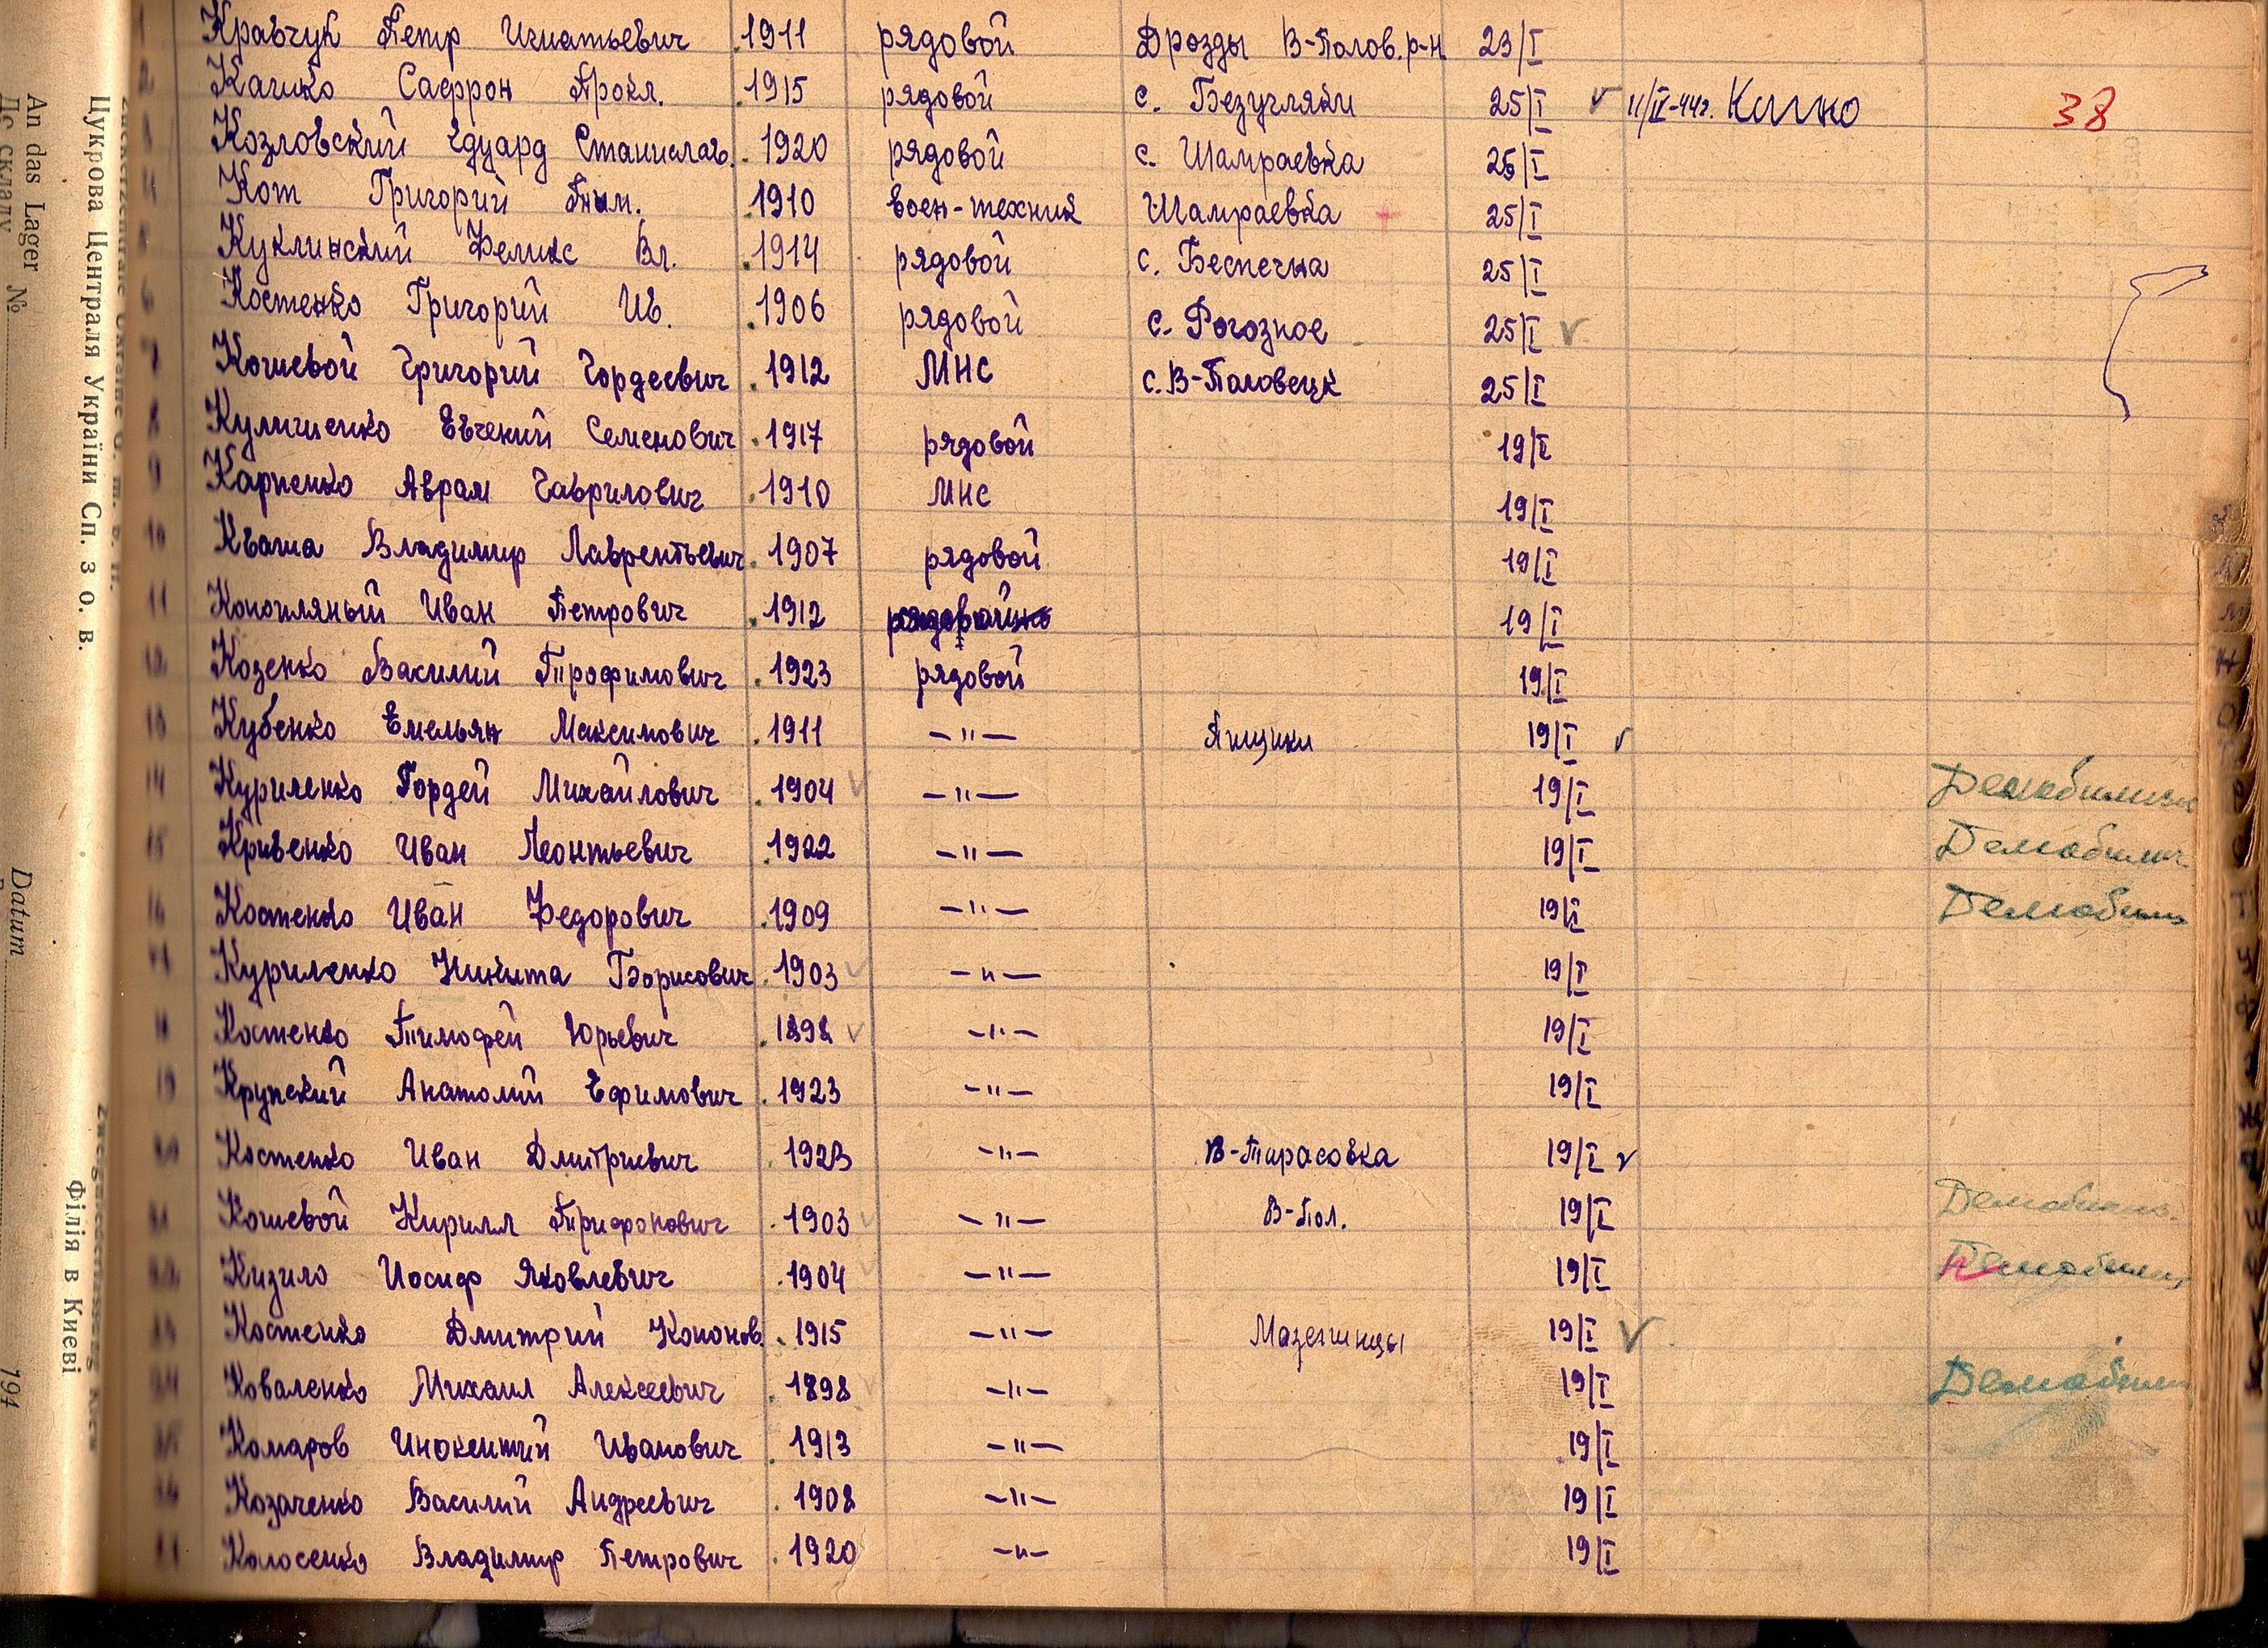 1 Кравчук Петр Игнатьевич 1911 рядовой Дрозды В-Полов. р-н 23/I
2 Сафрон Прокл. 1915 рядовой с. Безугляки 25/I 11/IV-44г. 38
3 Козловский Едуард Станислав. 1920 рядовой с. Шамраевка 25/I
4 Кот Григорий 1910 воен-техник Шамраевка 25/I
5 Куклинский Феликс Вл. 1914 рядовой с. Беспечна 25/I
6 Костенко Григорий Ив. 1906 рядовой с. Рогозное 25/I
7 Кошевой Григорий Гордеевич 1912 МНС с. В-Половецк 25/I
8 Евгений Семенович 1917 рядовой 19/I
9 Карпенко Аврам Гаврилович 1910 МНС 19/I
10 Кваша Владимир Лаврентьевич 1907 рядовой 19/I
11 Конопляный Иван Петрович 1912 19/I
12 Козенко Василий Трофимович 1923 рядовой 19/I
13 Кубенко Емельян Максимович 1911 —"— Яцики 19/I
14 Куриленко Гордей Михайлович 1904 —"— 19/I Демобилизов
15 Кривенко Иван Леонтьевич 1922 —"— 19/I Демобилиз
16 Костенко Иван Федорович 1909 —"— 19/I Демобилиз
17 Куриленко Никита Борисович 1903 —"— 19/I
18 Костенко Тимофей Юрьевич 1898 —"— 19/I
19 Крупский Анатолий Ефимович 1923 —"— 19/I
20 Костенко Иван Дмитриевич 1923 —"— В-Тарасовка 19/I
21 Кошевой Кирилл Трифонович 1903 —"— В-Пол. 19/I Демобилиз.
22 Кизило Иосиф Яковлевич 1904 —"— 19/I Демобилиз
23 Костенко Дмитрий Кононов. 1915 —"— Мазепинцы 19/I
24 Коваленко Михаил Алексеевич 1898 —"— 19/I Демобилиз
25 Комаров Инокентий Иванович 1913 —"— 19/I
26 Козаченко Василий Андреевич 1908 —"— 19/I
Колосенко Владимир Петрович 1920 —"— 19/I
Цукрова Централя України Сп. з о. в.
Філія в Києві
An das Lager №
До складу
Datum 194